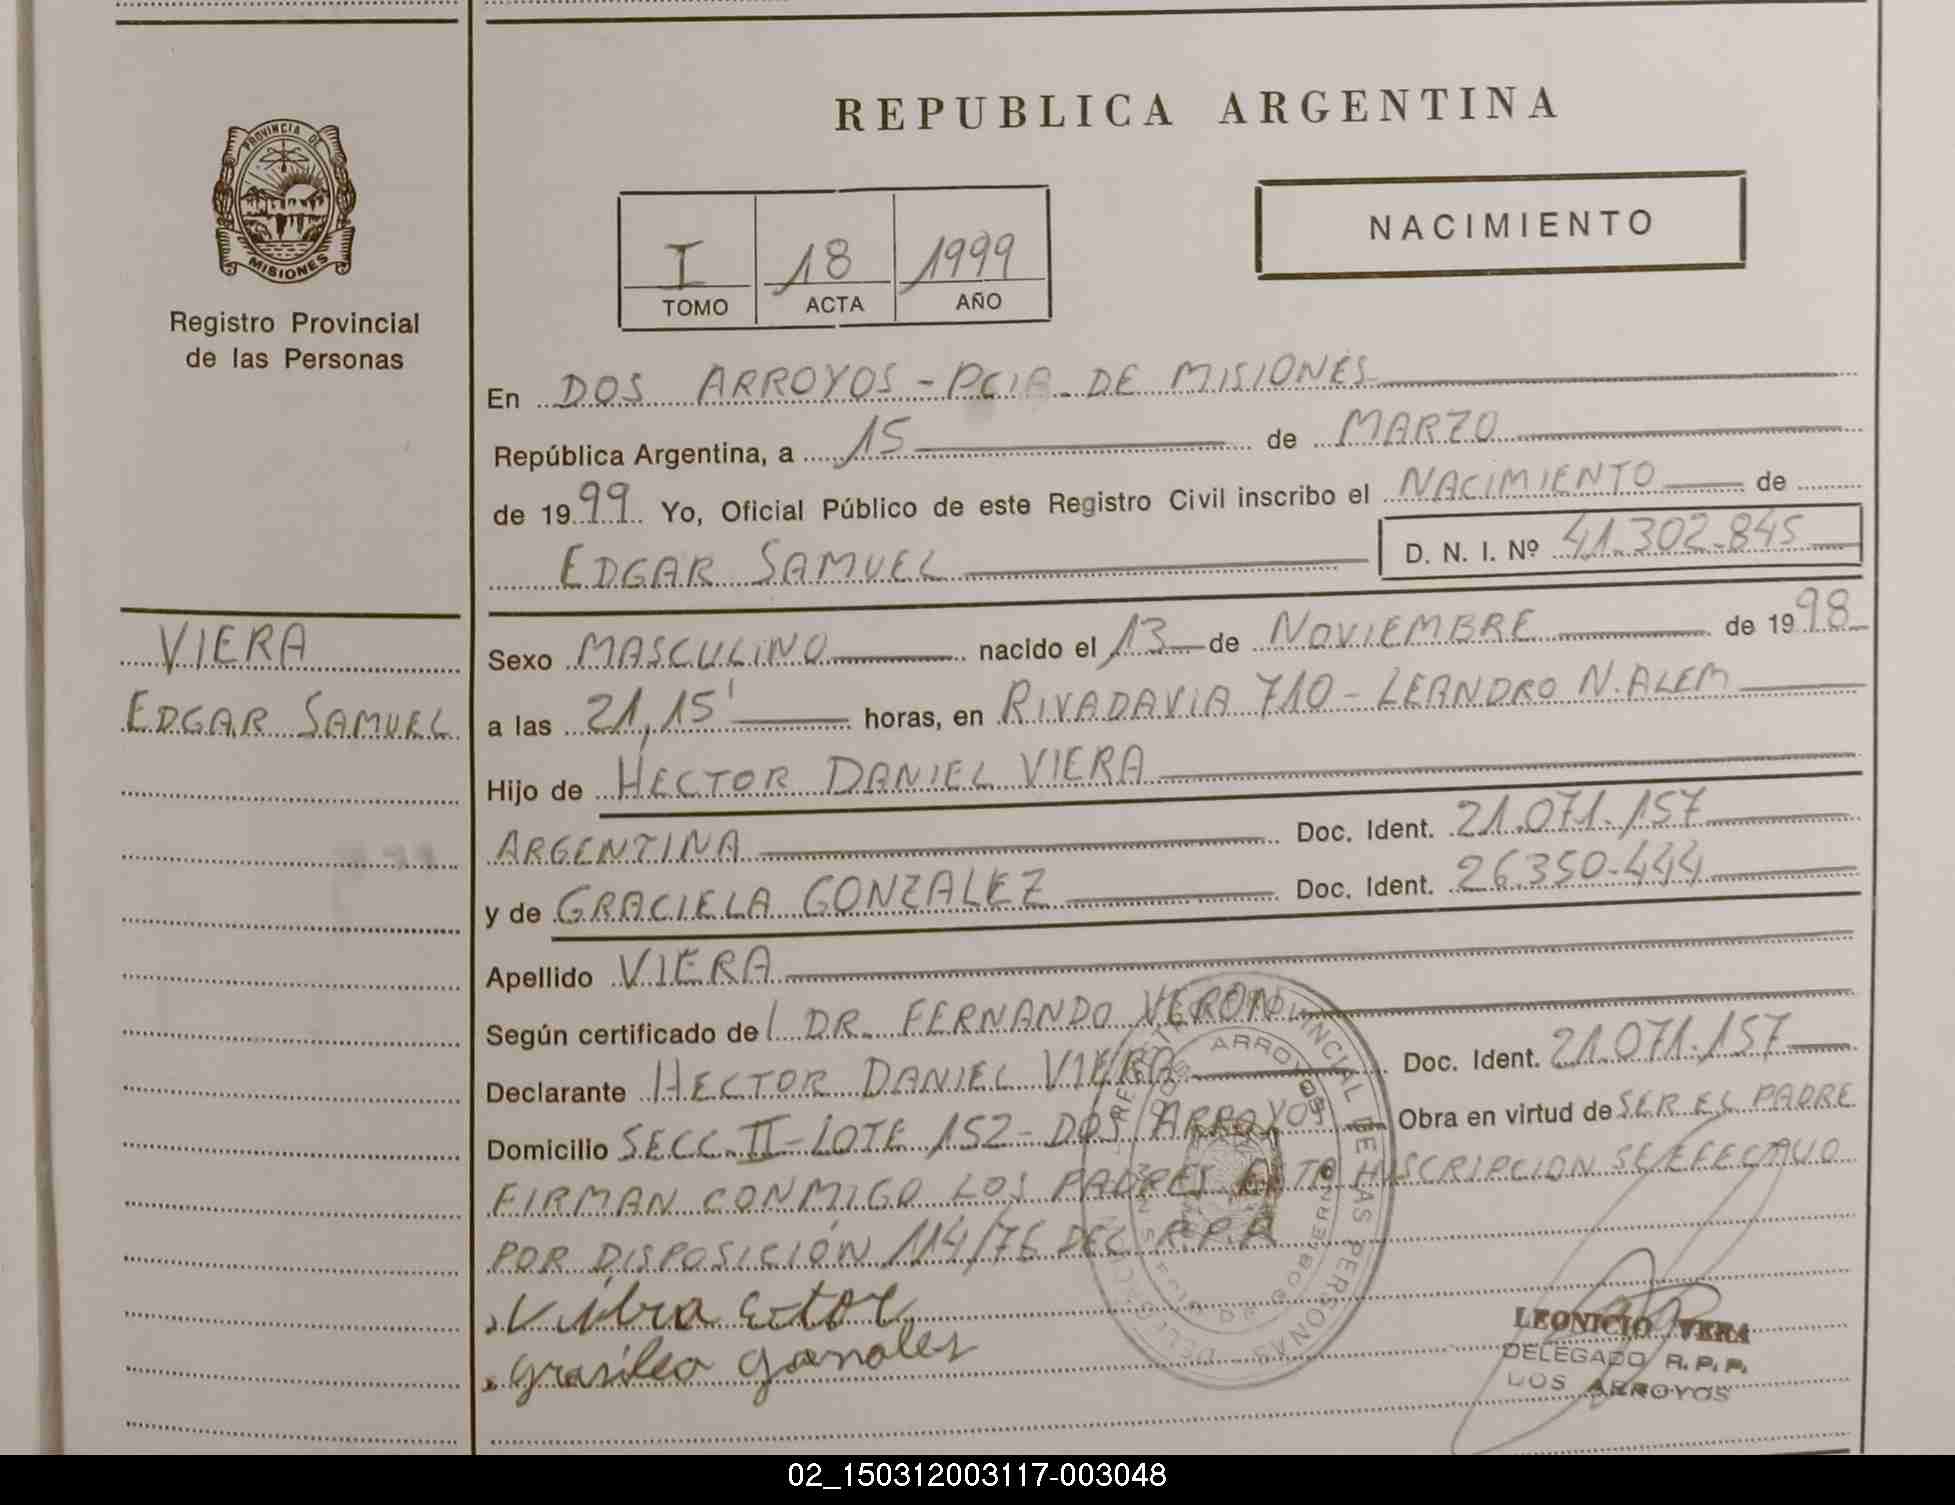 REPUBLICA ARGENTINA
NACIMIENTO
I 18 1999
TOMO ACTA AÑO
PROVINCIA DE
MISIONES
Registro Provincial
de las Personas
En DOS ARROYOS - PCIA. DE MISIONES
República Argentina, a 15 de MARZO
de 1999 Yo, Oficial Público de este Registro Civil inscribo el NACIMIENTO de
EDGAR SAMUEL D. N. I. Nº 41.302.845
VIERA
EDGAR SAMUEL
Sexo MASCULINO nacido el 13 de NOVIEMBRE de 1998
a las 21,15' horas, en RIVADAVIA 710 - LEANDRO N. ALEM
Hijo de HECTOR DANIEL VIERA
ARGENTINA Doc. Ident. 21.071.157
y de GRACIELA GONZALEZ Doc. Ident. 26.350.444
Apellido VIERA
Según certificado del DR. FERNANDO VERON
Declarante HECTOR DANIEL VIERA Doc. Ident. 21.071.157
Domicilio SECC. II - LOTE 152 - DOS ARROYOS Obra en virtud de SER EL PADRE
FIRMAN CONMIGO LOS PADRES ESTA INSCRIPCION SE EFECTAUO
POR DISPOSICIÓN 114/76 DEL R.P.P.
LEONICIO VERA
DELEGADO R. P. P.
DOS ARROYOS
02_150312003117-003048